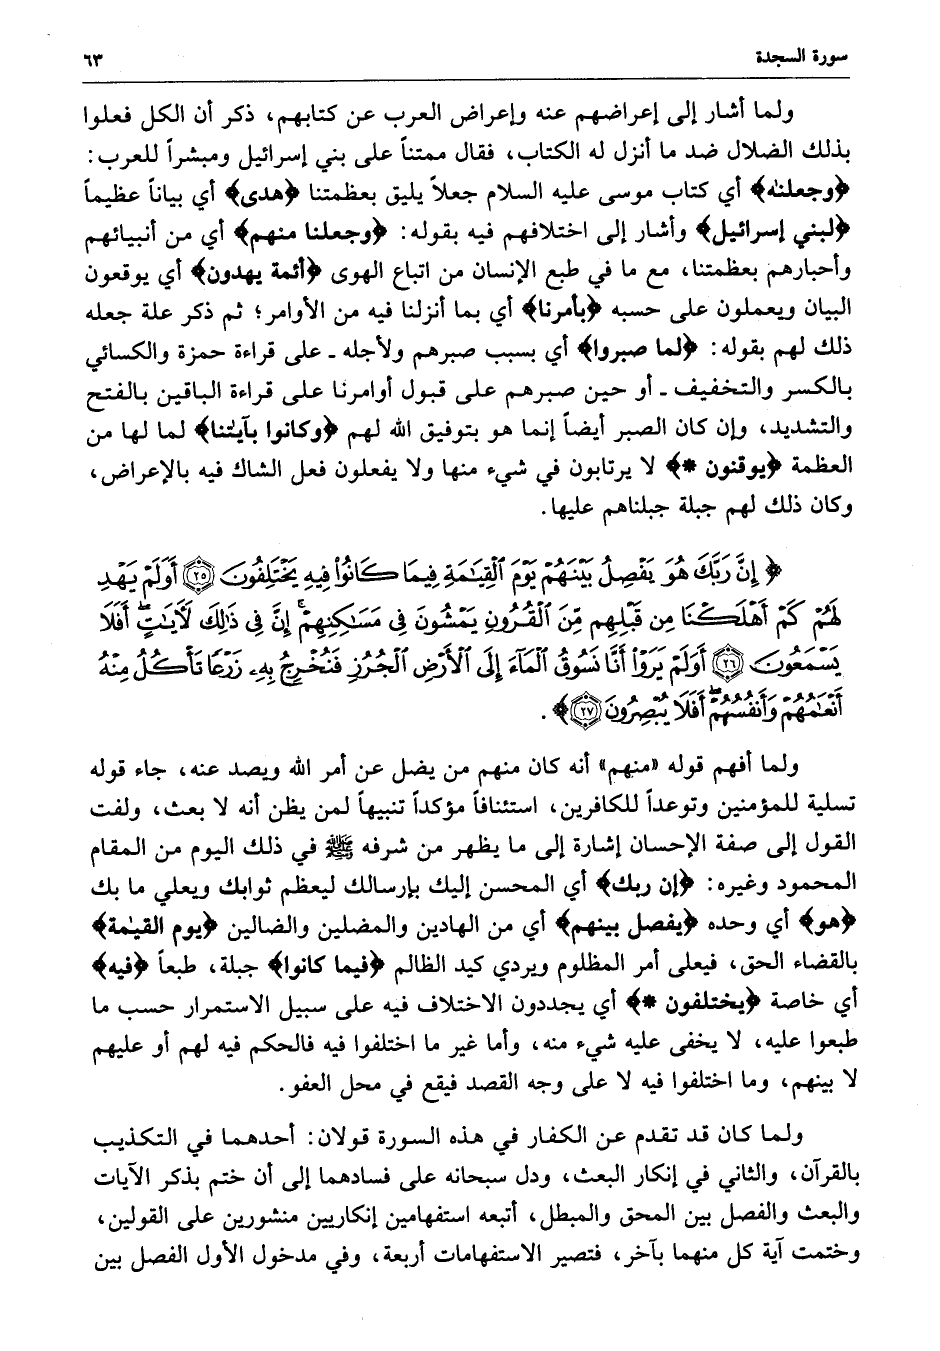 سورة السجدة ٦٣
ولما أشار إلى إعراضهم عنه وإعراض العرب عن كتابهم، ذكر أن الكل فعلوا
بذلك الضلال ضد ما أنزل له الكتاب، فقال ممتناً على بني إسرائيل ومبشراً للعرب:
﴿وجعلنٰه﴾ أي كتاب موسى عليه السلام جعلاً يليق بعظمتنا ﴿هدى﴾ أي بياناً عظيماً
﴿لبني إسرائيل﴾ وأشار إلى اختلافهم فيه بقوله: ﴿وجعلنا منهم﴾ أي من أنبيائهم
وأحبارهم بعظمتنا، مع ما في طبع الإنسان من اتباع الهوى ﴿أئمة يهدون﴾ أي يوقعون
البيان ويعملون على حسبه ﴿بأمرنا﴾ أي بما أنزلنا فيه من الأوامر؛ ثم ذكر علة جعله
ذلك لهم بقوله: ﴿لما صبروا﴾ أي بسبب صبرهم ولأجله ـ على قراءة حمزة والكسائي
بالكسر والتخفيف ـ أو حين صبرهم على قبول أوامرنا على قراءة الباقين بالفتح
والتشديد، وإن كان الصبر أيضاً إنما هو بتوفيق الله لهم ﴿وكانوا بآيٰتنا﴾ لما لها من
العظمة ﴿يوقنون *﴾ لا يرتابون في شيء منها ولا يفعلون فعل الشاك فيه بالإعراض،
وكان ذلك لهم جبلة جبلناهم عليها.
﴿إِنَّ رَبَّكَ هُوَ يَفْصِلُ بَيْنَهُمْ يَوْمَ ٱلْقِيَٰمَةِ فِيمَا كَانُوا۟ فِيهِ يَخْتَلِفُونَ ٢٥ أَوَلَمْ يَهْدِ
لَهُمْ كَمْ أَهْلَكْنَا مِن قَبْلِهِم مِّنَ ٱلْقُرُونِ يَمْشُونَ فِى مَسَٰكِنِهِمْ ۚ إِنَّ فِى ذَٰلِكَ لَءَايَٰتٍ ۖ أَفَلَا
يَسْمَعُونَ ٢٦ أَوَلَمْ يَرَوْا۟ أَنَّا نَسُوقُ ٱلْمَآءَ إِلَى ٱلْأَرْضِ ٱلْجُرُزِ فَنُخْرِجُ بِهِۦ زَرْعًا تَأْكُلُ مِنْهُ
أَنْعَٰمُهُمْ وَأَنفُسُهُمْ ۖ أَفَلَا يُبْصِرُونَ ٢٧﴾.
ولما أفهم قوله «منهم» أنه كان منهم من يضل عن أمر الله ويصد عنه، جاء قوله
تسلية للمؤمنين وتوعداً للكافرين، استئنافاً مؤكداً تنبيهاً لمن يظن أنه لا بعث، ولفت
القول إلى صفة الإحسان إشارة إلى ما يظهر من شرفه ﷺ في ذلك اليوم من المقام
المحمود وغيره: ﴿إن ربك﴾ أي المحسن إليك بإرسالك ليعظم ثوابك ويعلي ما بك
﴿هو﴾ أي وحده ﴿يفصل بينهم﴾ أي من الهادين والمضلين والضالين ﴿يوم القيٰمة﴾
بالقضاء الحق، فيعلى أمر المظلوم ويردي كيد الظالم ﴿فيما كانوا﴾ جبلة، طبعاً ﴿فيه﴾
أي خاصة ﴿يختلفون *﴾ أي يجددون الاختلاف فيه على سبيل الاستمرار حسب ما
طبعوا عليه، لا يخفى عليه شيء منه، وأما غير ما اختلفوا فيه فالحكم فيه لهم أو عليهم
لا بينهم، وما اختلفوا فيه لا على وجه القصد فيقع في محل العفو.
ولما كان قد تقدم عن الكفار في هذه السورة قولان: أحدهما في التكذيب
بالقرآن، والثاني في إنكار البعث، ودل سبحانه على فسادهما إلى أن ختم بذكر الآيات
والبعث والفصل بين المحق والمبطل، أتبعه استفهامين إنكاريين منشورين على القولين،
وختمت آية كل منهما بآخر، فتصير الاستفهامات أربعة، وفي مدخول الأول الفصل بين